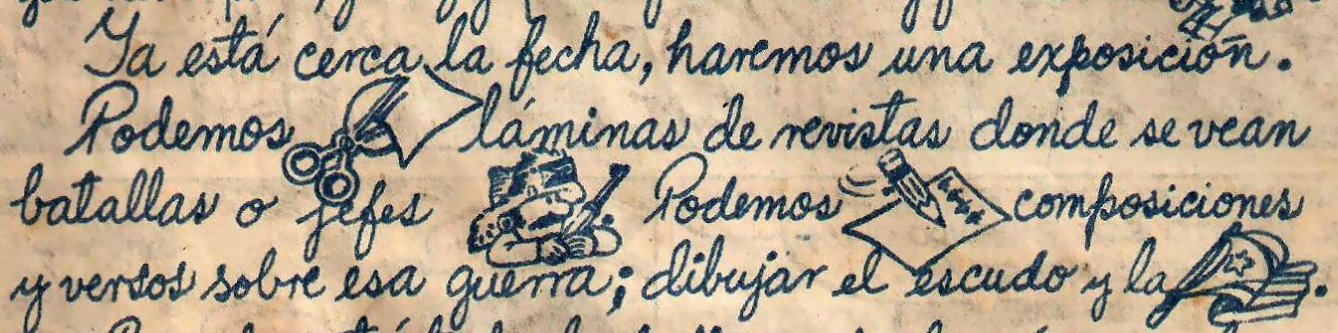 Ya está cerca la fecha, haremos una exposición.
Podemos láminas de revistas donde se vean
batallas o jefes Podemos composiciones
y versos sobre esa guerra; dibujar el escudo y la .